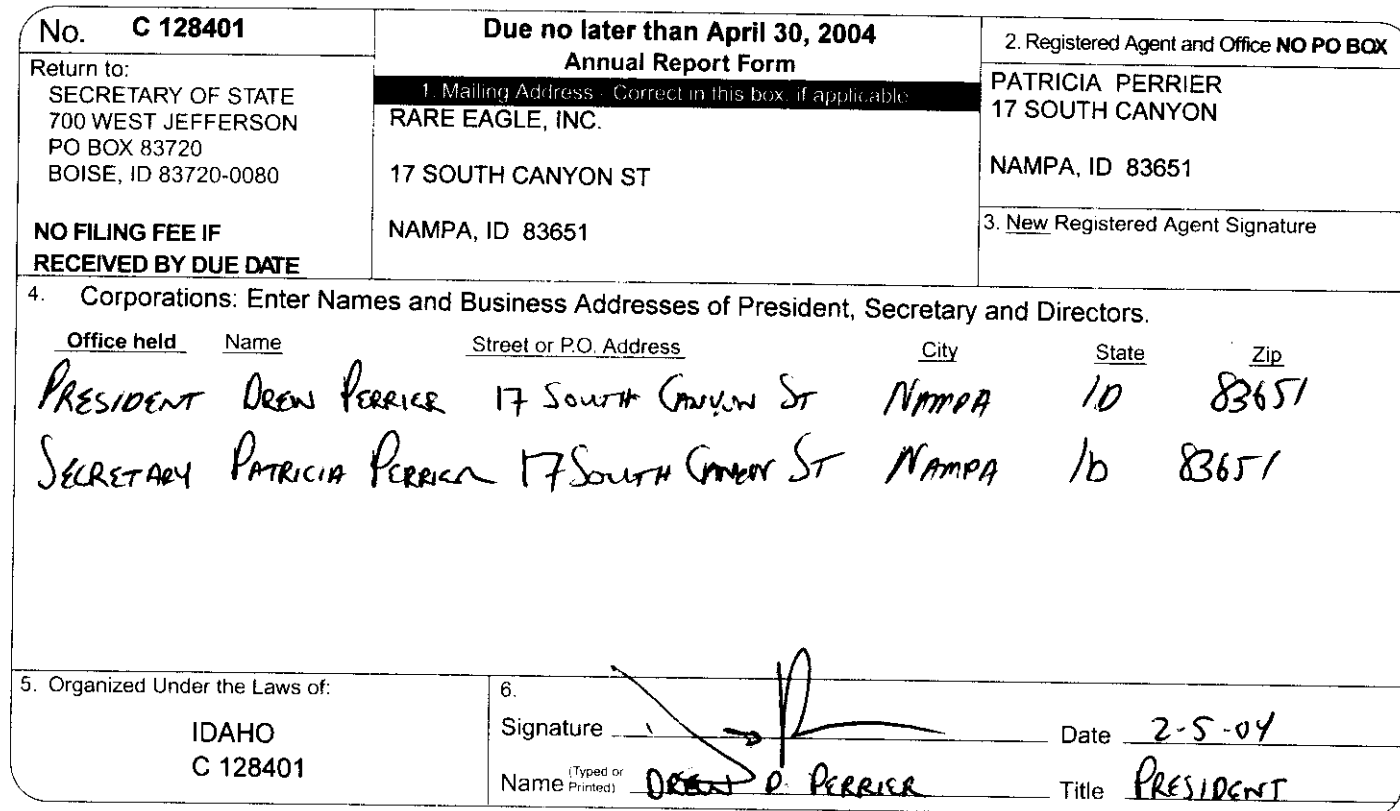 No. C 128401
Return to:
SECRETARY OF STATE
700 WEST JEFFERSON
PO BOX 83720
BOISE, ID 83720-0080
NO FILING FEE IF
RECEIVED BY DUE DATE
Due no later than April 30, 2004
Annual Report Form
1. Mailing Address - Correct in this box, if applicable
RARE EAGLE, INC.
17 SOUTH CANYON ST
NAMPA, ID 83651
2. Registered Agent and Office NO PO BOX
PATRICIA PERRIER
17 SOUTH CANYON
NAMPA, ID 83651
3. New Registered Agent Signature
4. Corporations: Enter Names and Business Addresses of President, Secretary and Directors.
Office held Name Street or P.O. Address City State Zip
PRESIDENT DREW PERRIER 17 SOUTH CANYON ST NAMPA ID 83651
SECRETARY PATRICIA PERRIER 17 SOUTH CANYON ST NAMPA ID 83651
5. Organized Under the Laws of:
IDAHO
C 128401
6.
Signature Date 2-5-04
Name (Typed or Printed) DREW P. PERRIER Title PRESIDENT